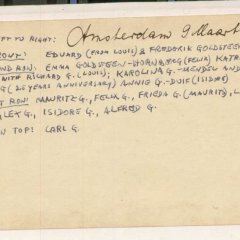 EFT TO RIGHT: Amsterdam 9 Maart
RONT: EDUARD (FROM LOUIS) & FREDERIK GOLDSTEEN
ND ROW: EMMA GOLDSTEEN-HORNBERG (FELIX) KATR
WITH RICHARD G. (LOUIS); KAROLINA G.-MENDEL AND
G (25 YEARS ANNIVERSARY) ANNIE G.-DUIF (ISIDORE)
ROW: MAURITZ G., FELIX G., FRIEDA G. (MAURITZ), L
ALEX G., ISIDORE G., ALFRED G.
N TOP: CARL G.